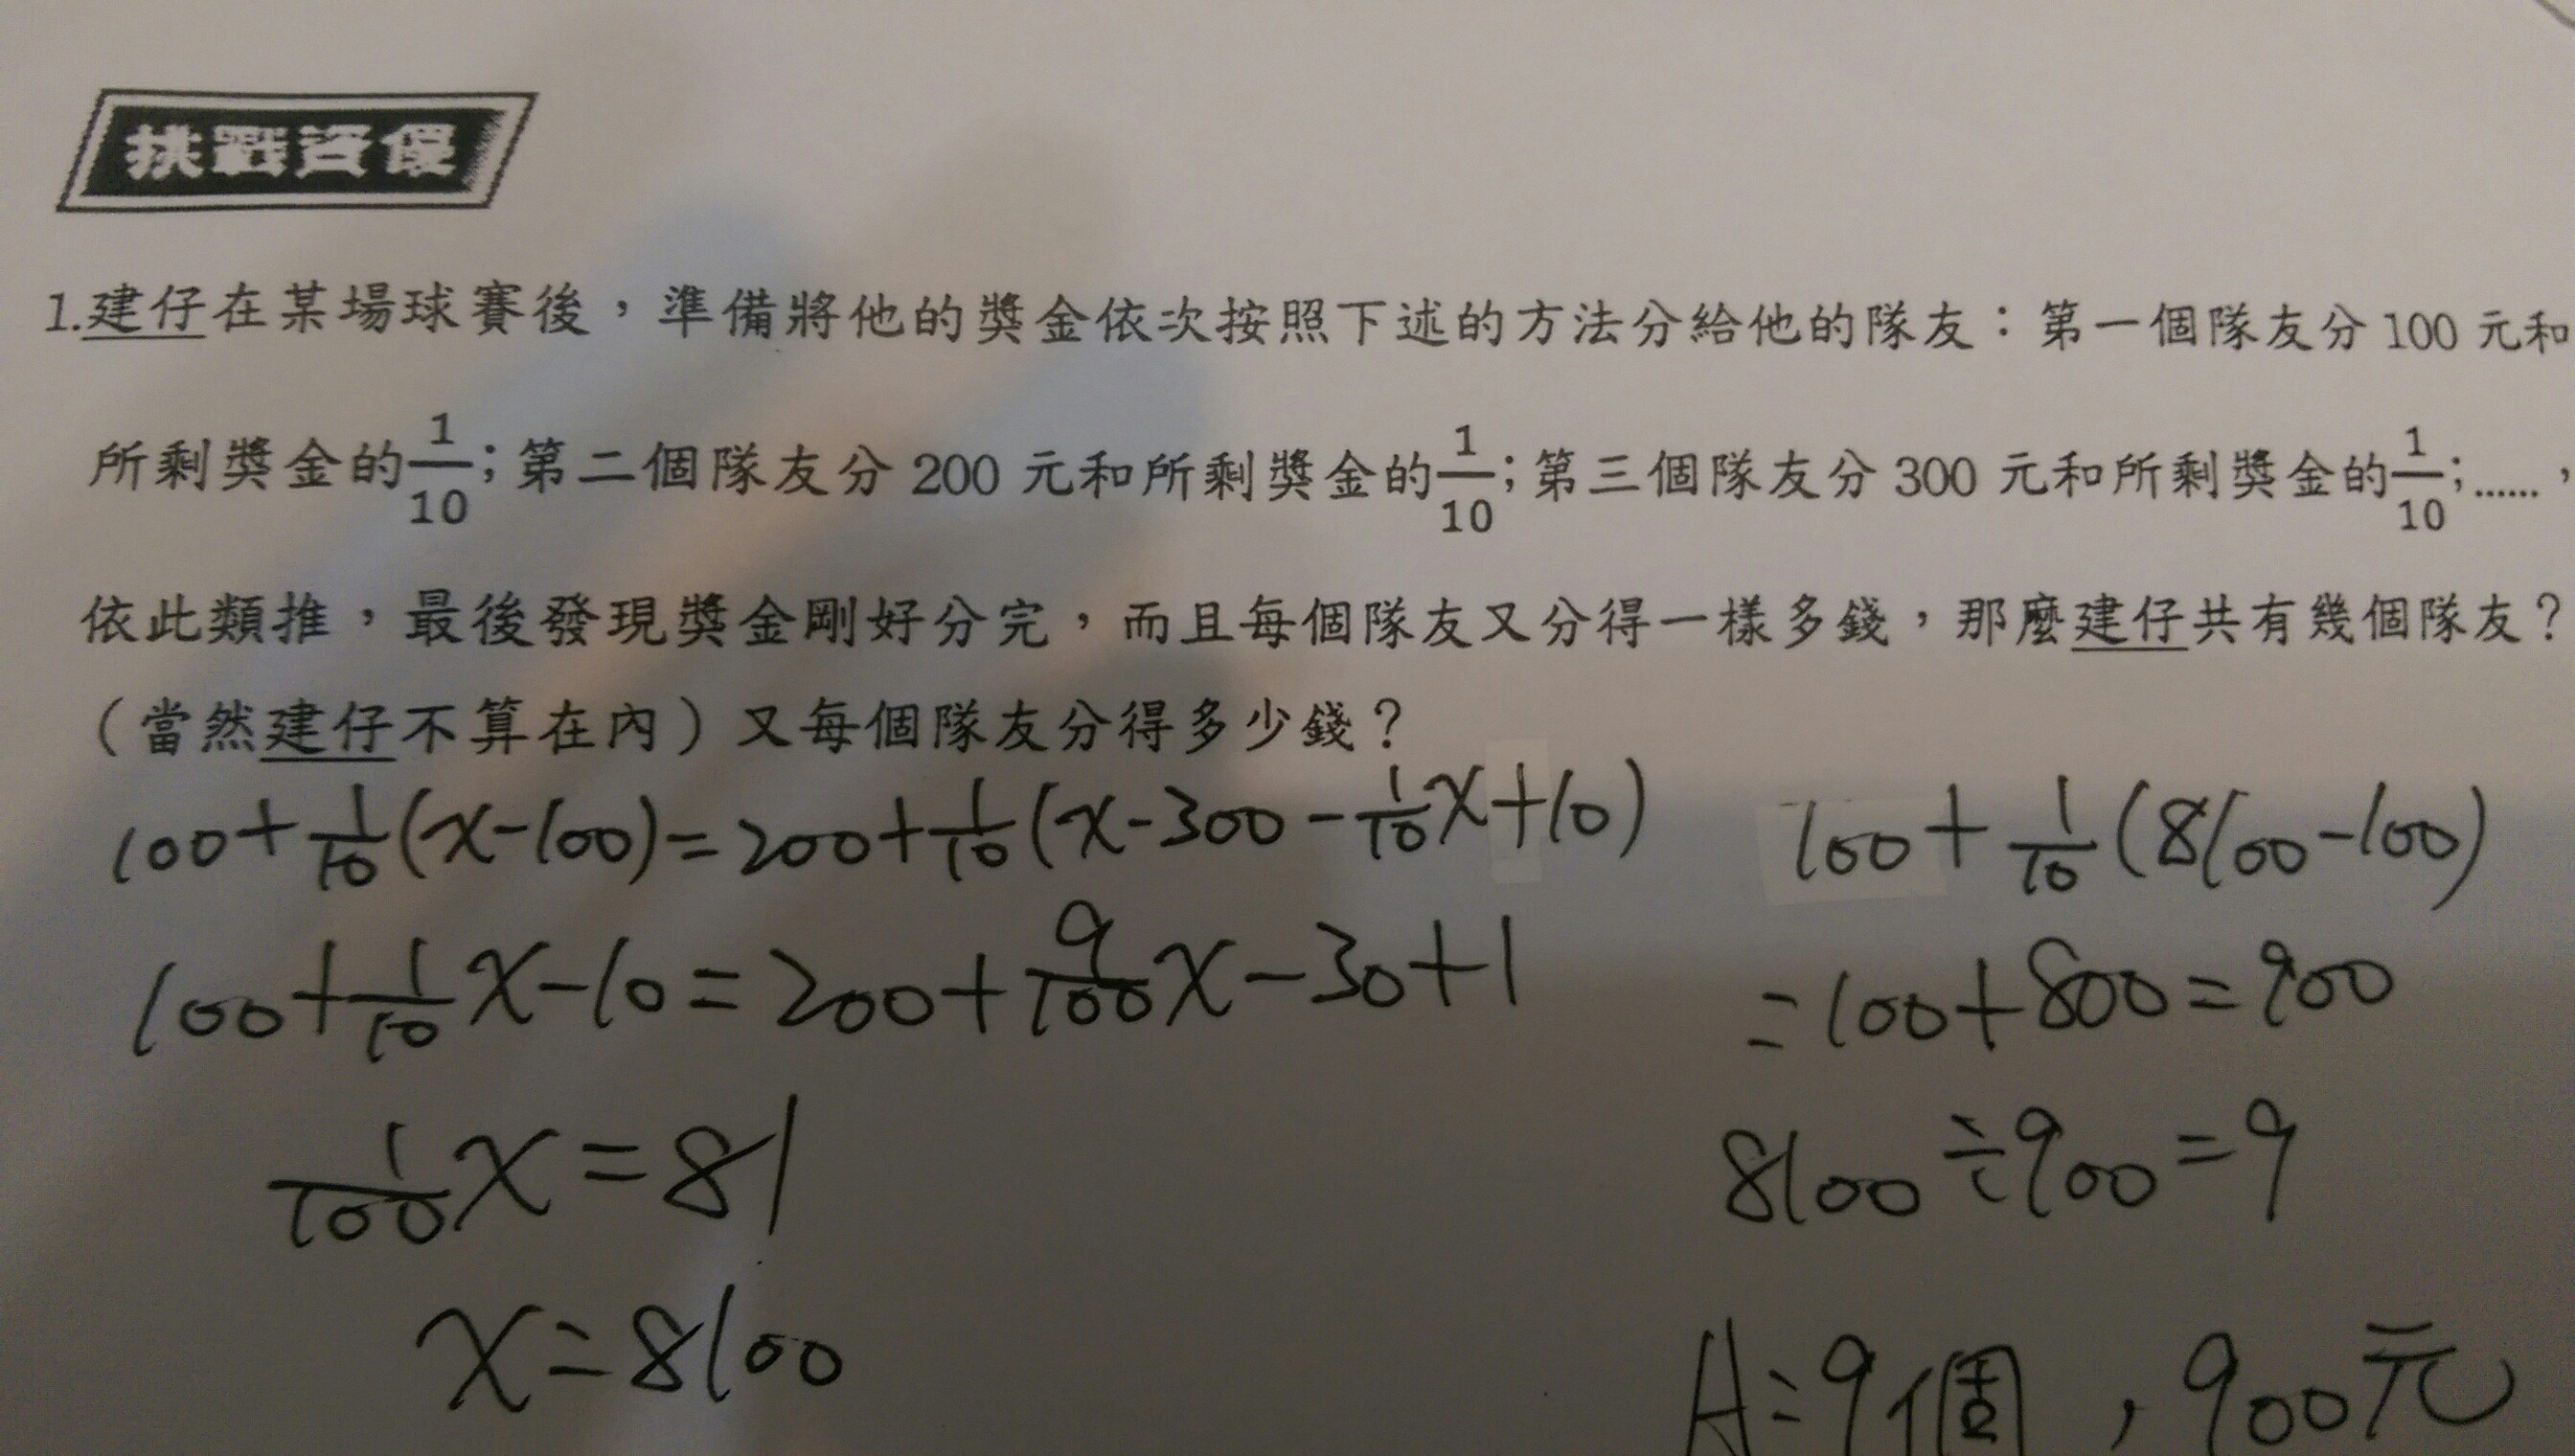 挑戰資優
1.建仔在某場球賽後，準備將他的獎金依次按照下述的方法分給他的隊友：第一個隊友分 100 元和
所剩獎金的1/10；第二個隊友分 200 元和所剩獎金的1/10；第三個隊友分 300 元和所剩獎金的1/10；……，
依此類推，最後發現獎金剛好分完，而且每個隊友又分得一樣多錢，那麼建仔共有幾個隊友？
（當然建仔不算在內）又每個隊友分得多少錢？
100+1/10(x-100)=200+1/10(x-300-1/10x+10)
100+1/10x-10=200+9/100x-30+1
1/100x=81
x=8100
100+1/10(8100-100)
=100+800=900
8100÷900=9
A:9個，900元